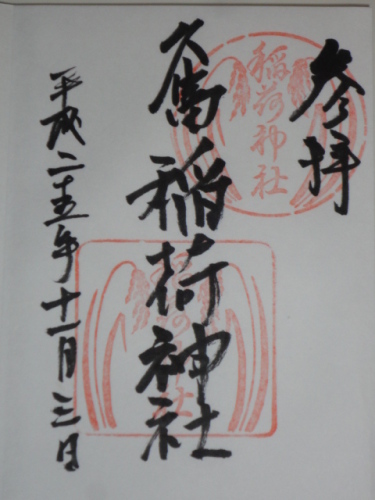 参拝
稲荷神社
久富稲荷神社
平成二十五年十一月三日